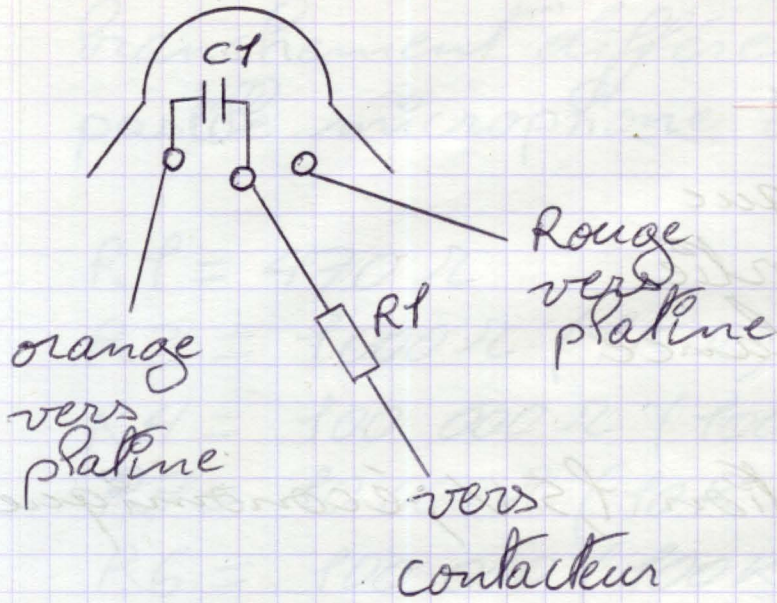 C1
Rouge
vers
platine
R1
orange
vers
platine
vers
contacteur